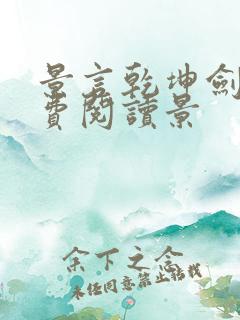 景言乾坤劍
費閱讀景
余下之念
未经同意禁止转载